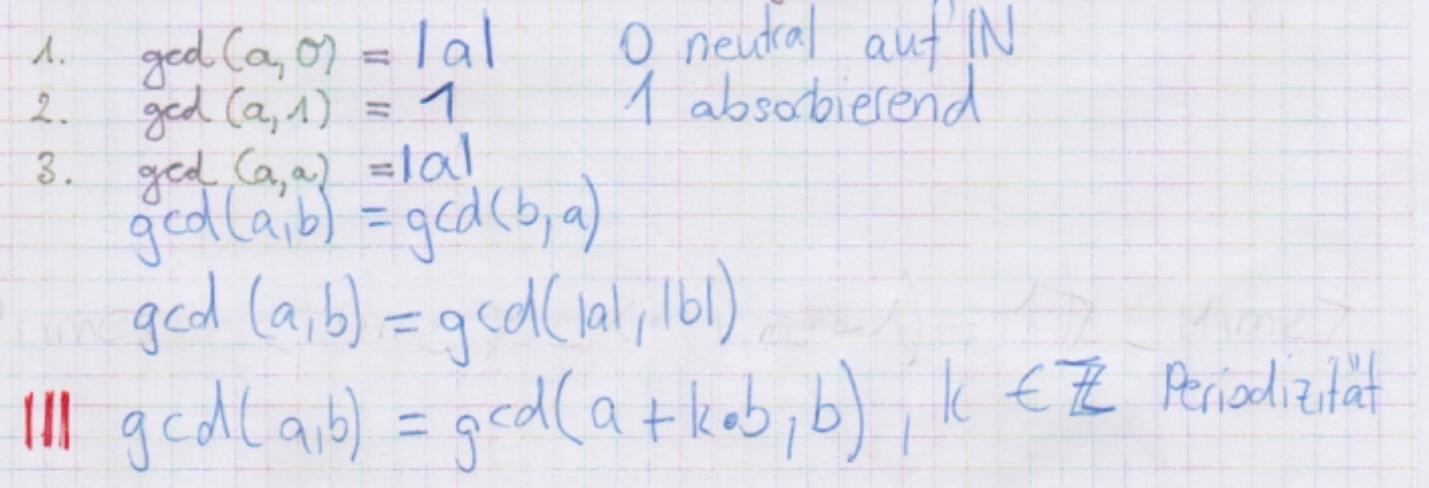 1. gcd (a, 0) = |a| 0 neutral auf ℕ
2. gcd (a, 1) = 1 1 absorbierend
3. gcd (a, a) = |a|
gcd(a,b) = gcd(b,a)
gcd (a,b) = gcd(|a|, |b|)
||| gcd(a,b) = gcd(a + k•b, b), k ∈ ℤ Periodizität